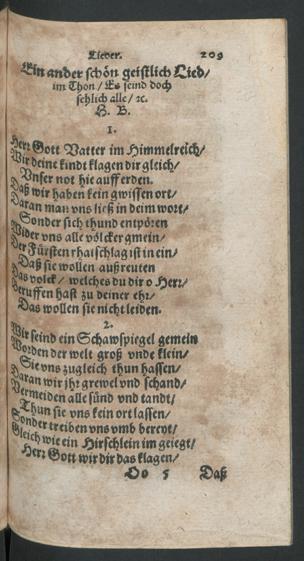 Lieder. 209
Ein ander schön geistlich Lied/
im Thon/ Es seind doch
sehlich alle/ ꝛc.
H. B.
1.
Herꝛ Gott Vatter im Himmelreich/
Wir deine kindt klagen dir gleich/
Vnser not hie auff erden.
Daß wir haben kein gwissen ort/
Daran man vns ließ in deim wort/
Sonder sich thund entpören
Wider vns alle völcker gmein/
Der Fürsten rhatschlag ist in ein/
Daß sie wollen außreuten
Das volck/ welches du dir o Herꝛ/
Beruffen hast zu deiner ehꝛ/
Das wollen sie nicht leiden.
2.
Wir seind ein Schawspiegel gemein
Worden der welt groß vnde klein/
Sie vns zugleich thun hassen/
Daran wir jhꝛ grewel vnd schand/
Vermeiden alle sünd vnd tandt/
Thun sie vns kein ort lassen/
Sonder treiben vns vmb bereyt/
Gleich wie ein Hirschlein im geiegt/
Herꝛ Gott wir dir das klagen/
Oo 5 Daß